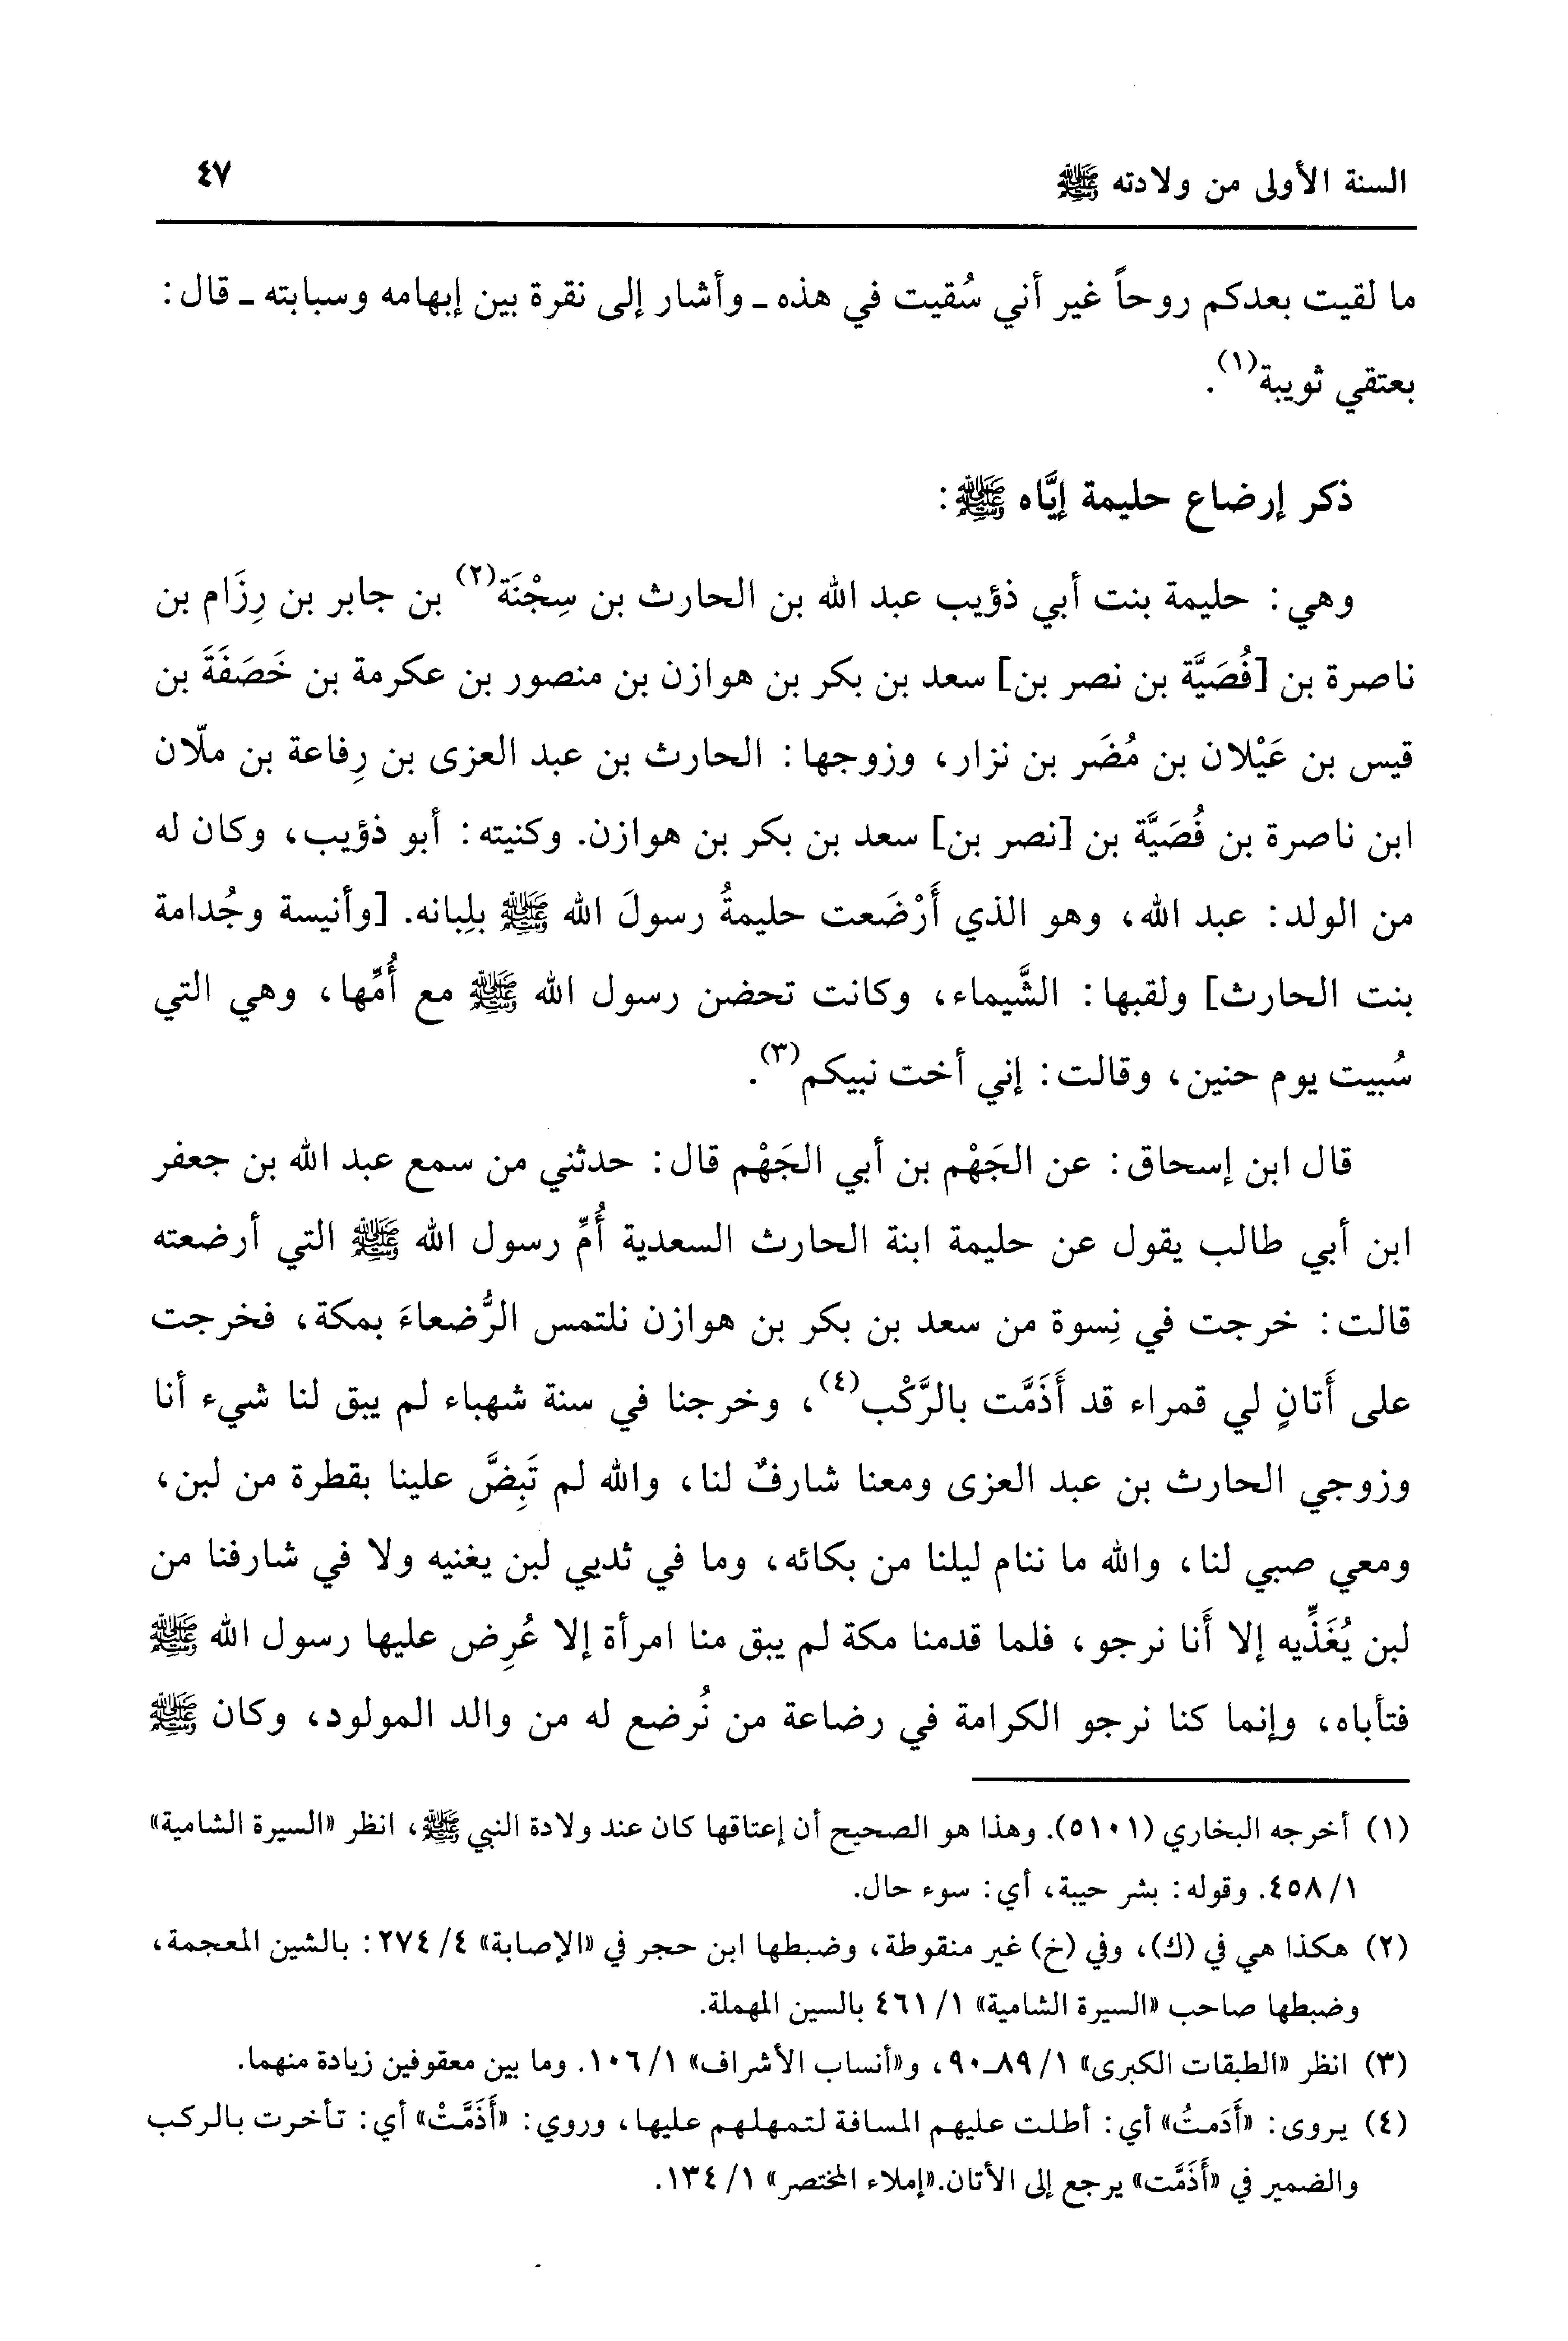 السنة الأولى من ولادته ﷺ
٤٧
ما لقيت بعدكم روحاً غير أني سُقيت في هذه ـ وأشار إلى نقرة بين إبهامه وسبابته ـ قال:
بعتقي ثويبة(١).
ذكر إرضاع حليمة إيَّاه ﷺ:
وهي: حليمة بنت أبي ذؤيب عبد الله بن الحارث بن سِجْنَة(٢) بن جابر بن رِزَام بن
ناصرة بن [فُصَيَّة بن نصر بن] سعد بن بكر بن هوازن بن منصور بن عكرمة بن خَصَفَةَ بن
قيس بن عَيْلان بن مُضَر بن نزار، وزوجها: الحارث بن عبد العزى بن رِفاعة بن ملّان
ابن ناصرة بن فُصَيَّة بن [نصر بن] سعد بن بكر بن هوازن. وكنيته: أبو ذؤيب، وكان له
من الولد: عبد الله، وهو الذي أَرْضَعت حليمةُ رسولَ الله ﷺ بلِبانه. [وأنيسة وجُدامة
بنت الحارث] ولقبها: الشَّيماء، وكانت تحضن رسول الله ﷺ مع أُمِّها، وهي التي
سُبيت يوم حنين، وقالت: إني أخت نبيكم(٣).
قال ابن إسحاق: عن الجَهْم بن أبي الجَهْم قال: حدثني من سمع عبد الله بن جعفر
ابن أبي طالب يقول عن حليمة ابنة الحارث السعدية أُمِّ رسول الله ﷺ التي أرضعته
قالت: خرجت في نِسوة من سعد بن بكر بن هوازن نلتمس الرُّضعاءَ بمكة، فخرجت
على أَتانٍ لي قمراء قد أَذَمَّت بالرَّكْب(٤)، وخرجنا في سنة شهباء لم يبق لنا شيء أنا
وزوجي الحارث بن عبد العزى ومعنا شارفٌ لنا، والله لم تَبِضَّ علينا بقطرة من لبن،
ومعي صبي لنا، والله ما ننام ليلنا من بكائه، وما في ثديي لبن يغنيه ولا في شارفنا من
لبن يُغَذِّيه إلا أَنا نرجو، فلما قدمنا مكة لم يبق منا امرأة إلا عُرِض عليها رسول الله ﷺ
فتأباه، وإنما كنا نرجو الكرامة في رضاعة من نُرضع له من والد المولود، وكان ﷺ
(١) أخرجه البخاري (٥١٠١). وهذا هو الصحيح أن إعتاقها كان عند ولادة النبي ﷺ، انظر «السيرة الشامية»
١/ ٤٥٨. وقوله: بشر حيبة، أي: سوء حال.
(٢) هكذا هي في (ك)، وفي (خ) غير منقوطة، وضبطها ابن حجر في «الإصابة» ٤/ ٢٧٤: بالشين المعجمة،
وضبطها صاحب «السيرة الشامية» ١/ ٤٦١ بالسين المهملة.
(٣) انظر «الطبقات الكبرى» ١/ ٨٩ـ٩٠، و«أنساب الأشراف» ١/ ١٠٦. وما بين معقوفين زيادة منهما.
(٤) يروى: «أَدَمتُ» أي: أطلت عليهم المسافة لتمهلهم عليها، وروي: «أَذَمَّتْ» أي: تأخرت بالركب
والضمير في «أَذَمَّت» يرجع إلى الأتان.«إملاء المختصر» ١/ ١٣٤.